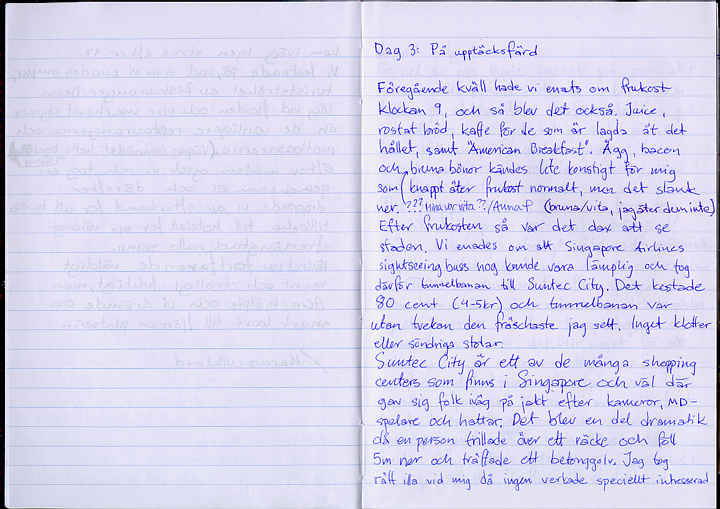 Dag 3: På upptäcksfärd
Föregående kväll hade vi enats om frukost
klockan 9, och så blev det också. Juice,
rostat bröd, kaffe för de som är lagda åt det
hållet, samt "American Breakfast". Ägg, bacon
och bruna bönor kändes lite konstigt för mig
som knappt äter frukost normalt, men det slank
ner. ??? Mina var vita ??/Anna F (bruna/vita, jag äter dem inte)
Efter frukosten så var det dax att se
staden. Vi enades om att Singapore Airlines
sightseeing buss nog kunde vara lämplig och tog
därför tunnelbanan till Suntec City. Det kostade
80 cent (4-5kr) och tunnelbanan var
utan tvekan den fräschaste jag sett. Inget klotter
eller söndriga stolar.
Suntec City är ett av de många shopping
centers som finns i Singapore och väl där
gav sig folk iväg på jakt efter kameror, MD-
spelare och hattar. Det blev en del dramatik
då en person trillade över ett räcke och föll
5m ner och träffade ett betonggolv. Jag tog
rätt illa vid mig då ingen verkade speciellt intresserad